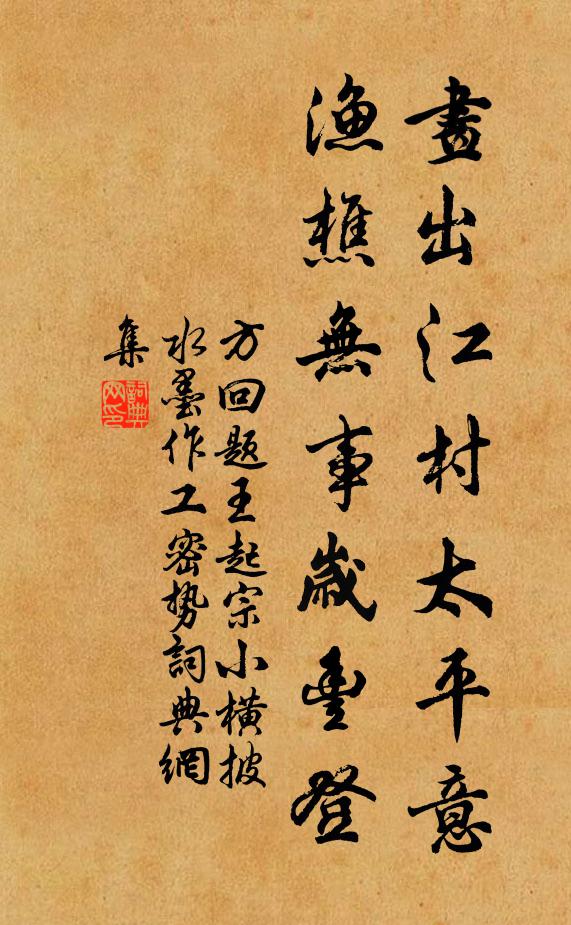 畫出江村太平意
漁樵無事歲豐登
方回題王起宗小橫披
水墨作工密勢詞典網
集
詞典網印